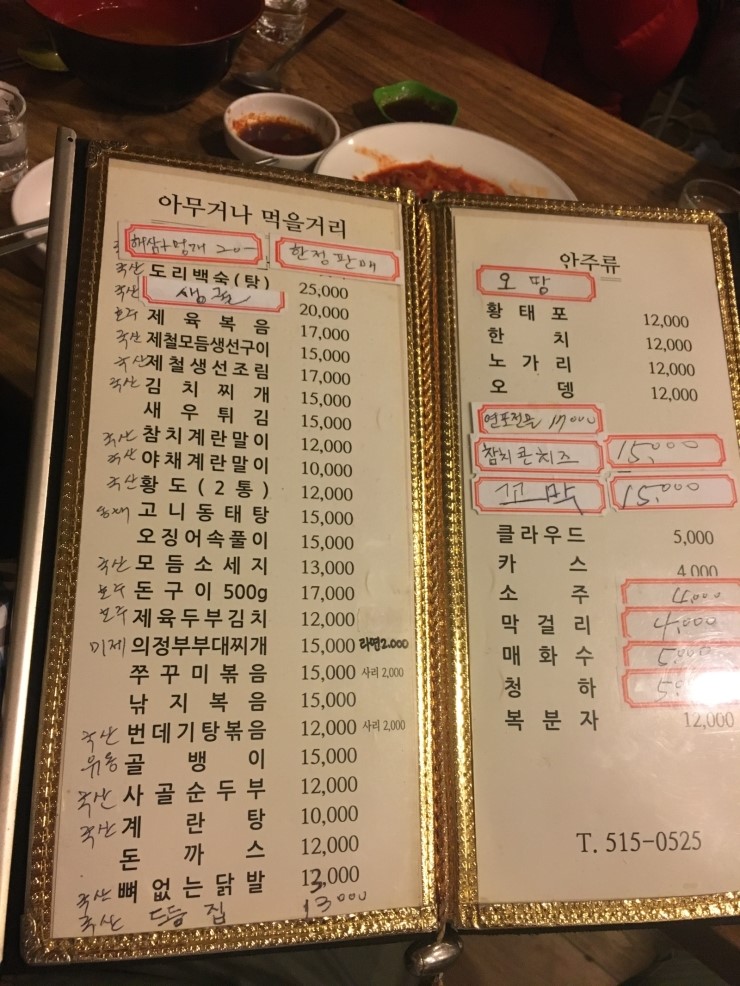 아무거나 먹을거리
해삼+멍게 20-
한정판매
국산 도리백숙(탕) 25,000
국산 생굴 20,000
호주 제육볶음 17,000
국산 제철모듬생선구이 15,000
국산 제철생선조림 17,000
국산 김치찌개 15,000
새우튀김 15,000
국산 참치계란말이 12,000
국산 야채계란말이 10,000
국산 황도(2통) 12,000
고니동태탕 15,000
오징어속풀이 15,000
국산 모듬소세지 13,000
호주 돈구이 500g 17,000
호주 제육두부김치 12,000
미제 의정부부대찌개 15,000 라면2.000
쭈꾸미볶음 15,000 사리 2,000
낚지볶음 15,000
국산 번데기탕볶음 12,000 사리 2,000
유동 골뱅이 15,000
국산 사골순두부 12,000
국산 계란탕 10,000
돈까스 12,000
국산 뼈없는닭발 13,000
국산 집 13000
안주류
오땅
황태포 12,000
한치 12,000
노가리 12,000
오뎅 12,000
17000
참치콘치즈 15,000
꼬막 15,000
클라우드 5,000
카스 4,000
소주 4,000
막걸리 4,000
매화수 5,000
청하
복분자 12,000
T. 515-0525